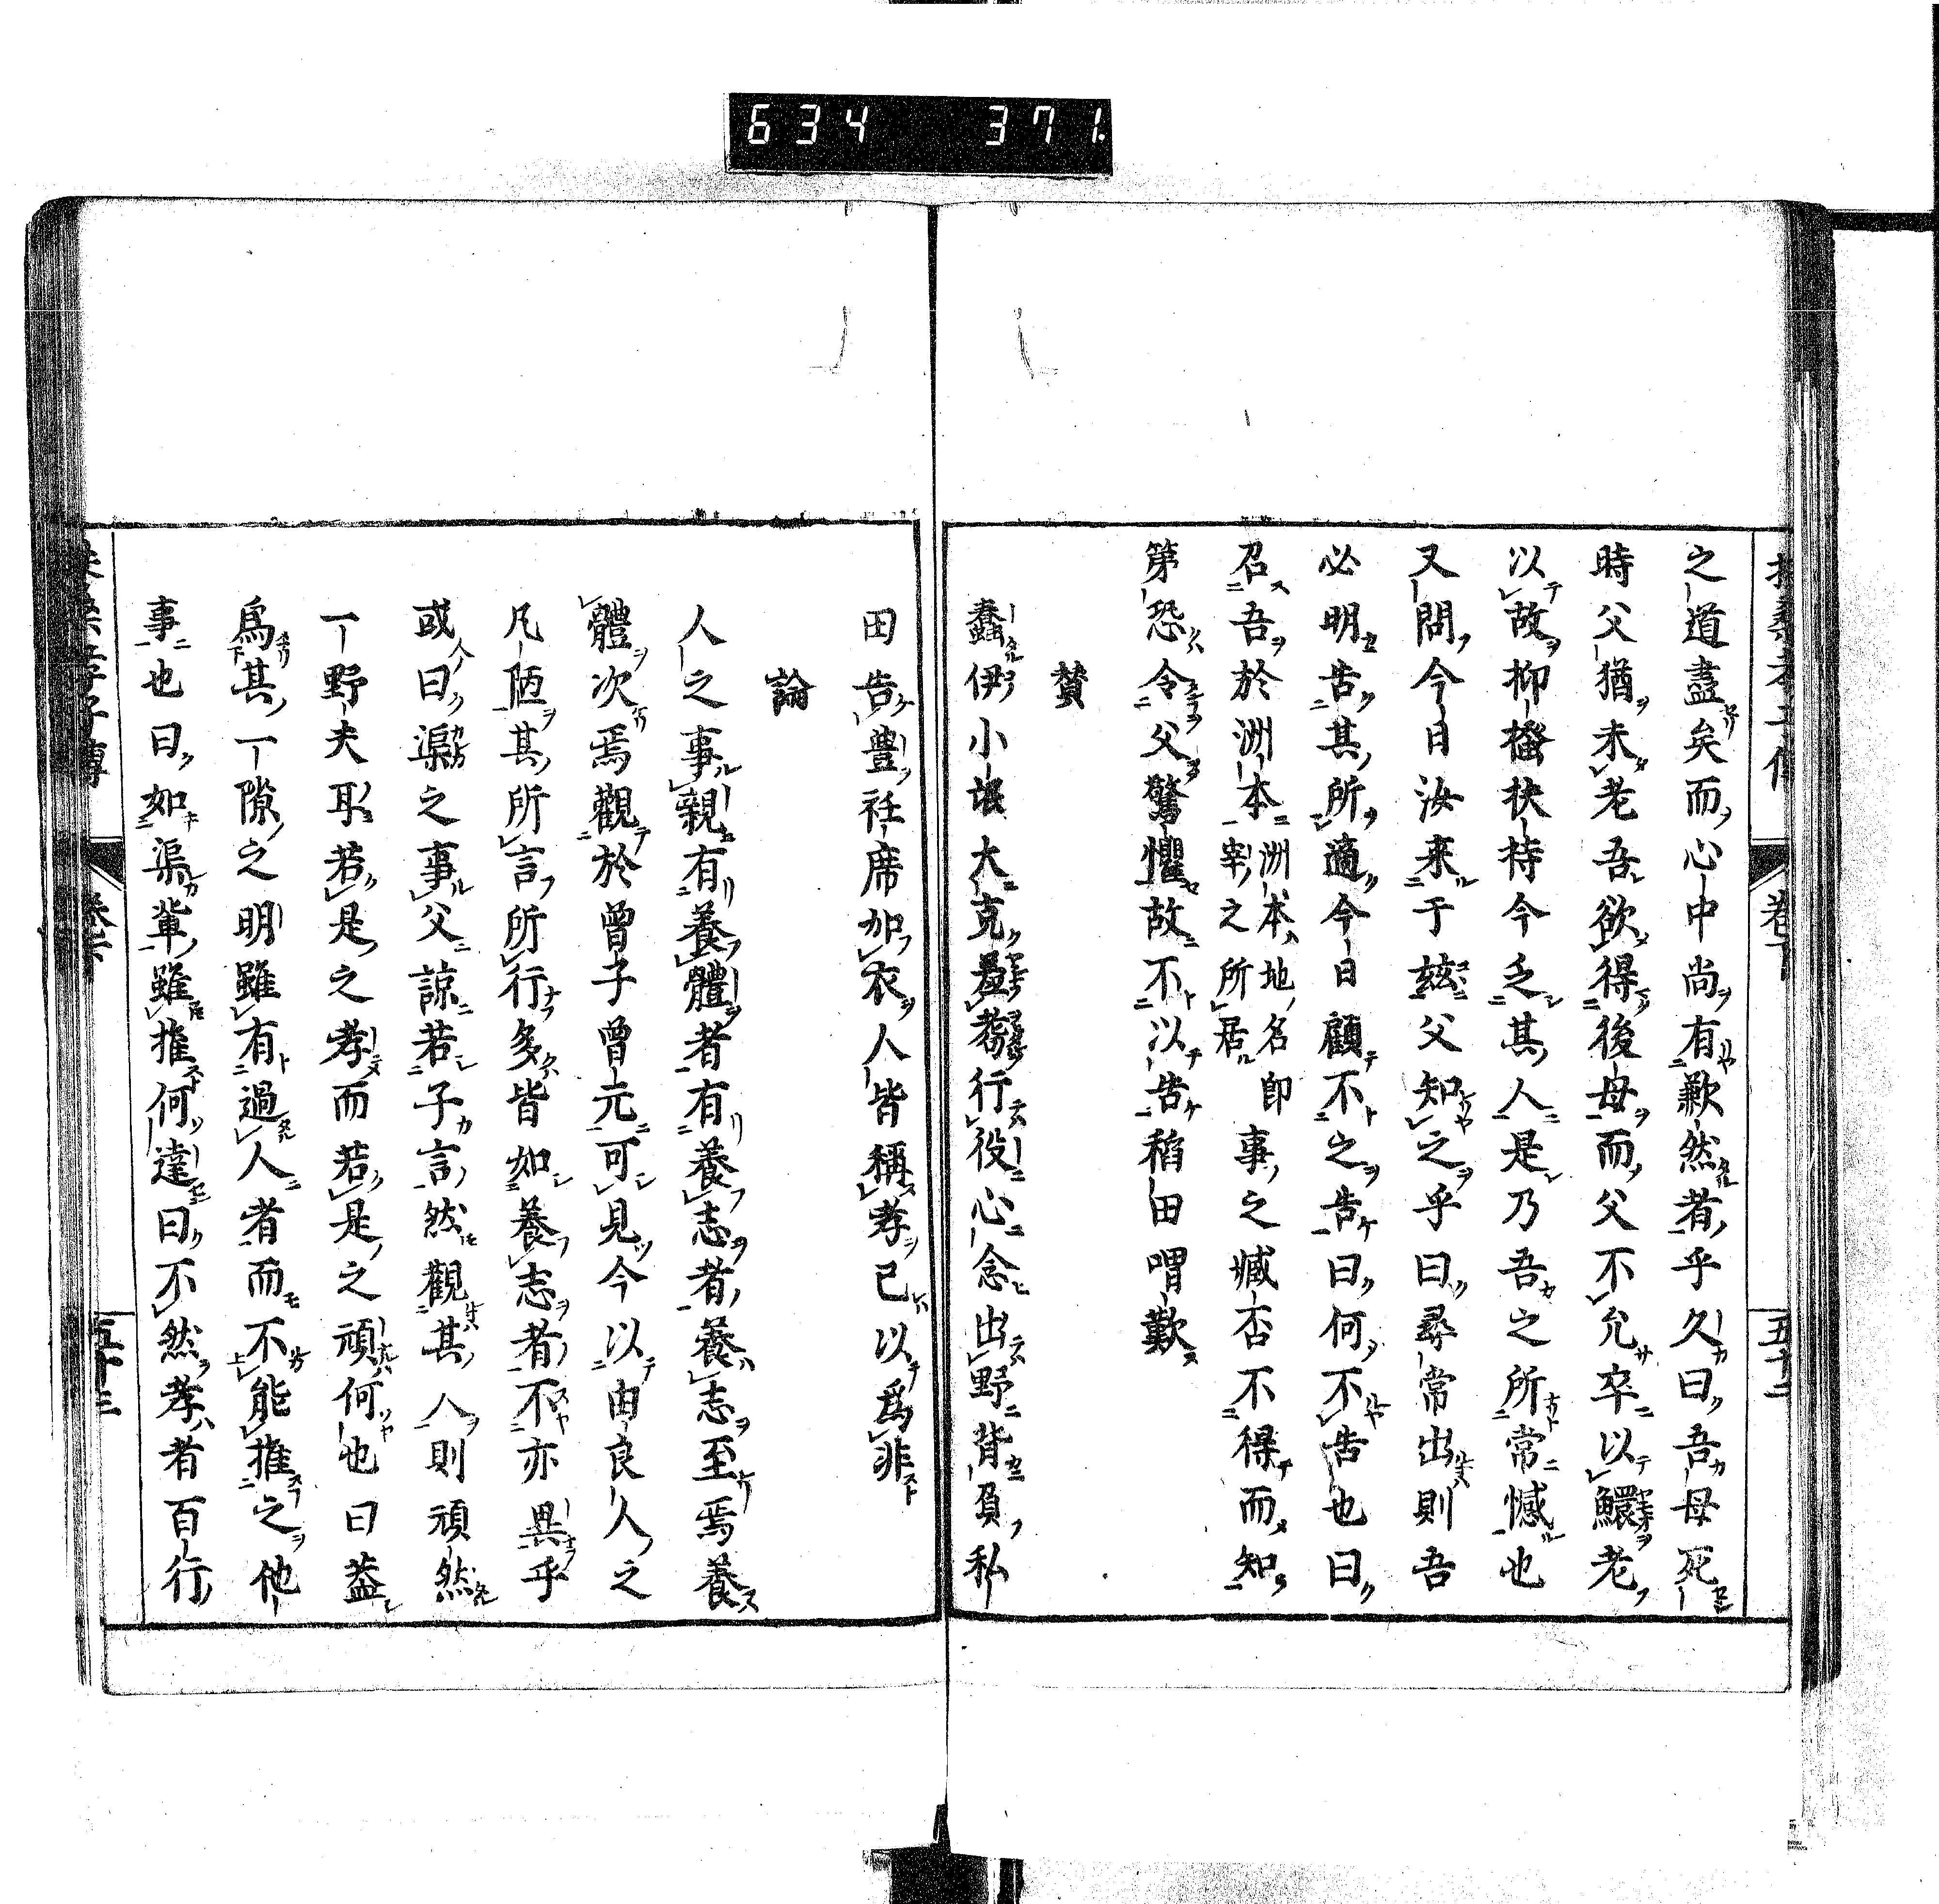 634 371.
卷下
五十二
之道盡矣而心中尚有歉然者乎久曰吾母死
時父猶未老吾欲得後母而父不允卒以鰥老
以故抑搔扶持今乏其人是乃吾之所常憾也
又問今日汝来于玆父知之乎曰尋常出則吾
必明告其所適今日顧不之告曰何不告也曰
召吾於洲本洲本地名即宰之所居事之臧否不得而知
第恐令父驚懼故不以告稻田喟歎
贊
蠢伊小氓大克羞耇行役心念出野背負私
田告豊衽席加衣人皆稱孝己以爲非
論
人之事親有養體者有養志者養志至焉養
體次焉觀於曾子曾元可見今以由良人之
凡陋其所言所行多皆如養志者不亦異乎
或曰渠之事父諒若子言然觀其人則頑然
一野夫耳若是之孝而若是之頑何也曰蓋
爲其一隙之明雖有過人者而不能推之他
事也曰如渠輩雖推何達曰不然孝者百行
孝子傳
五十三